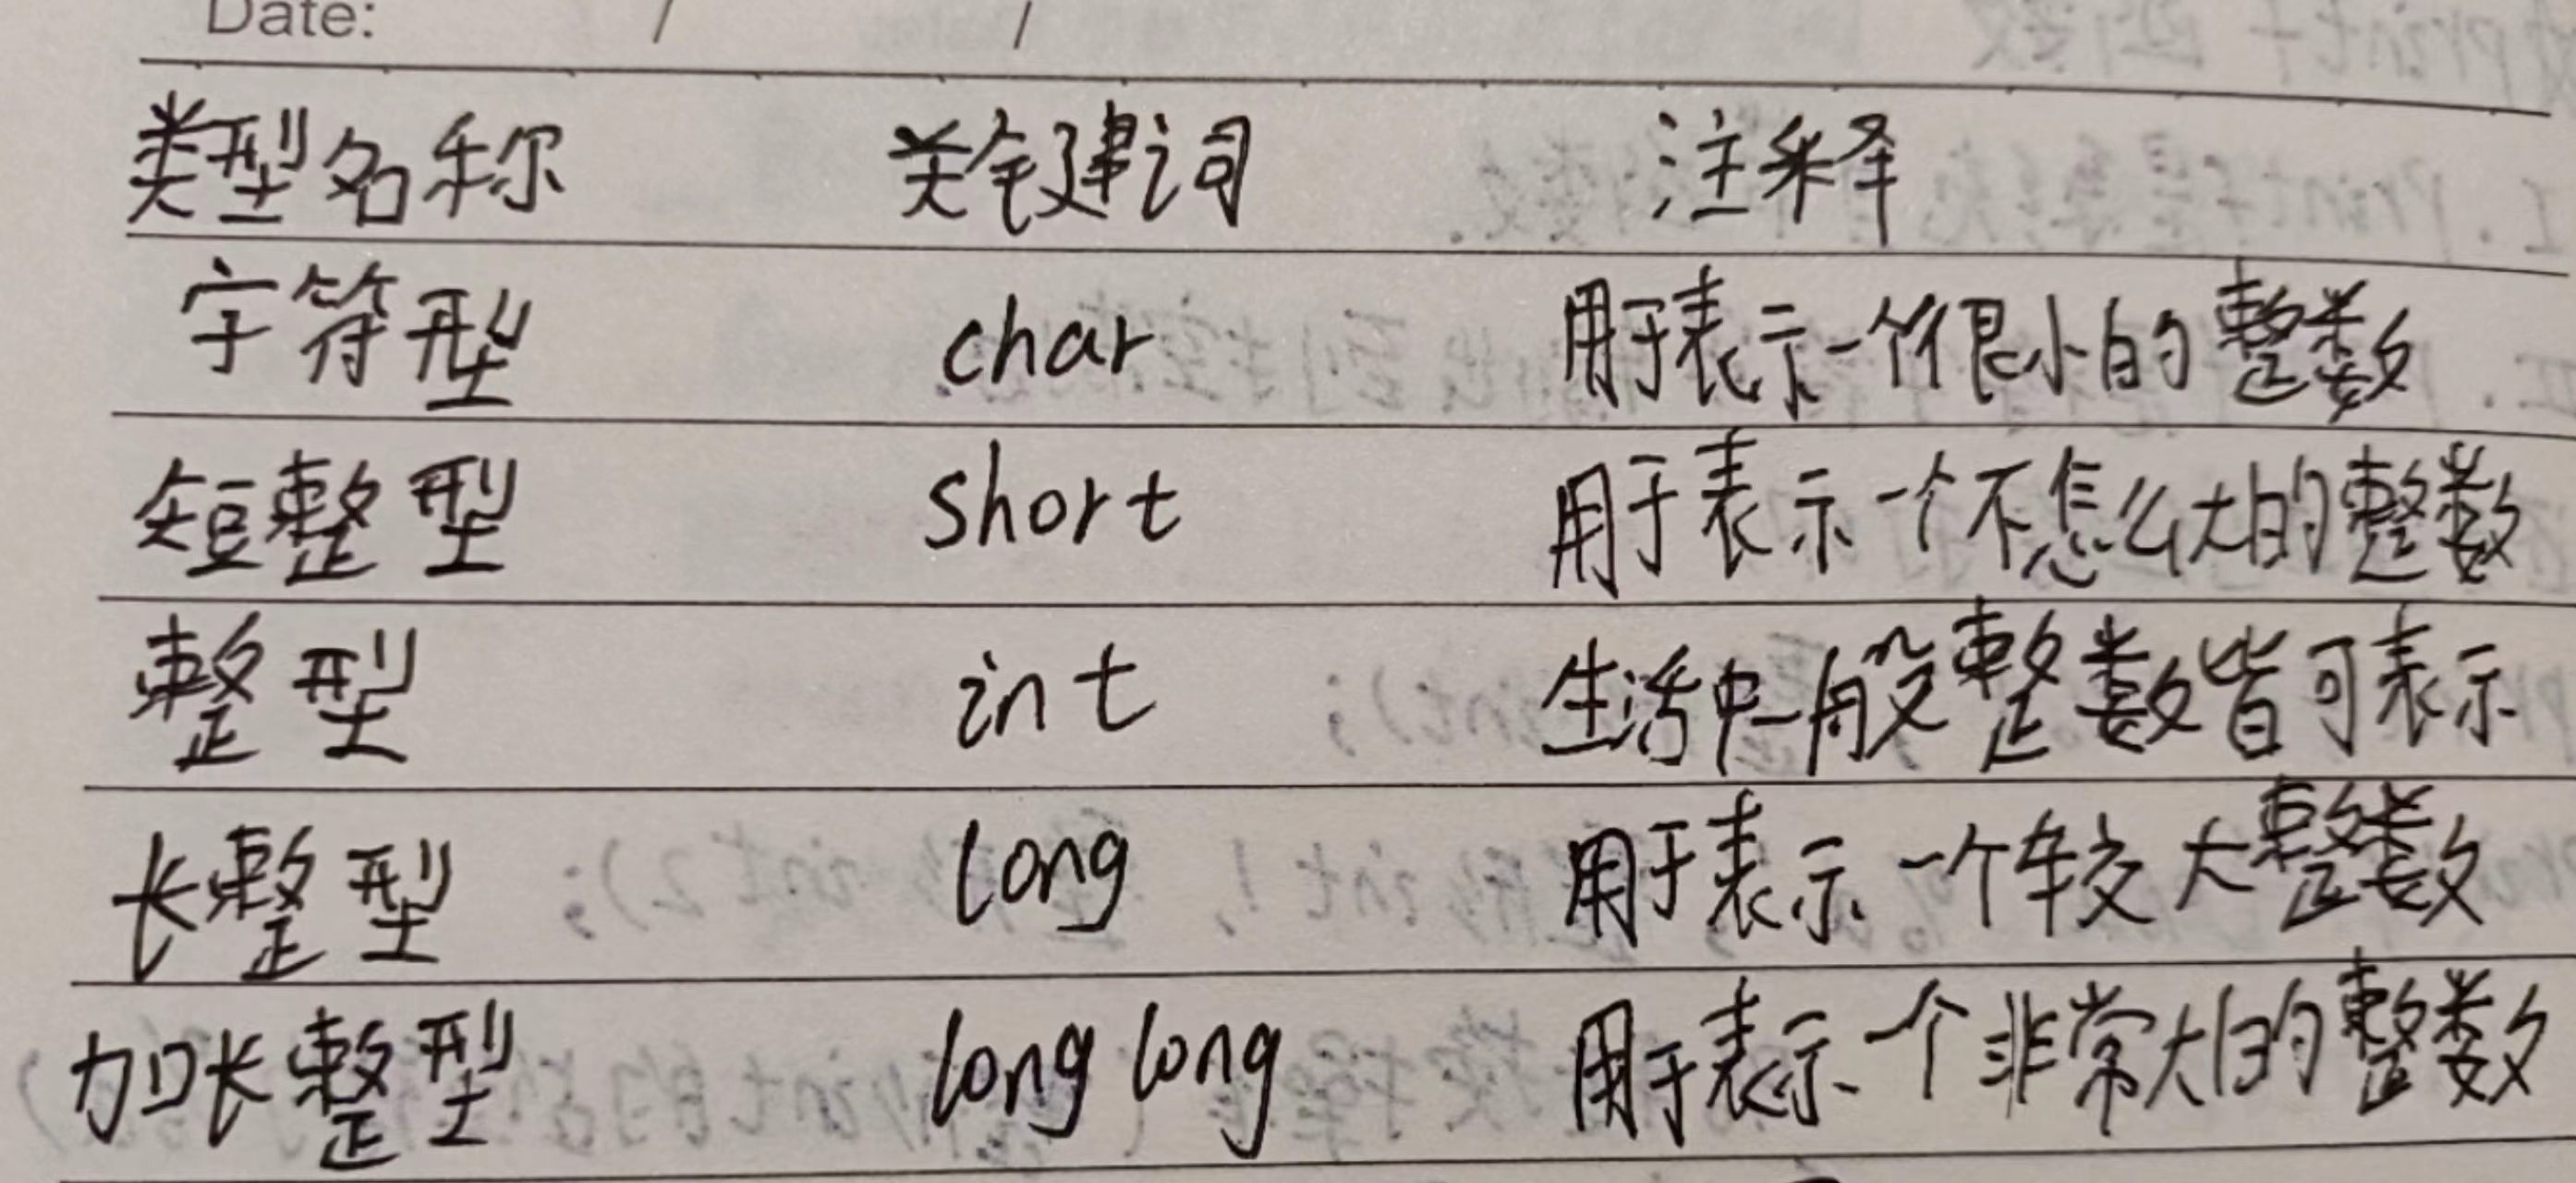 Date: / /
类型名称 关键词 注释
字符型 char 用于表示一个很小的整数
短整型 short 用于表示一个不怎么大的整数
整型 int 生活中一般整数皆可表示
长整型 long 用于表示一个较大整数
加长整型 long long 用于表示一个非常大的整数